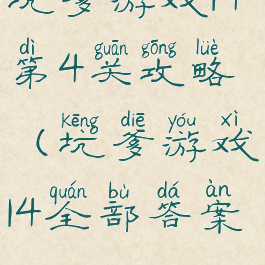 坑爹游戏
dì guān gōng lüè
第4关攻略
kēng diē yóu xì
(坑爹游戏
quán bù dá àn
14全部答案